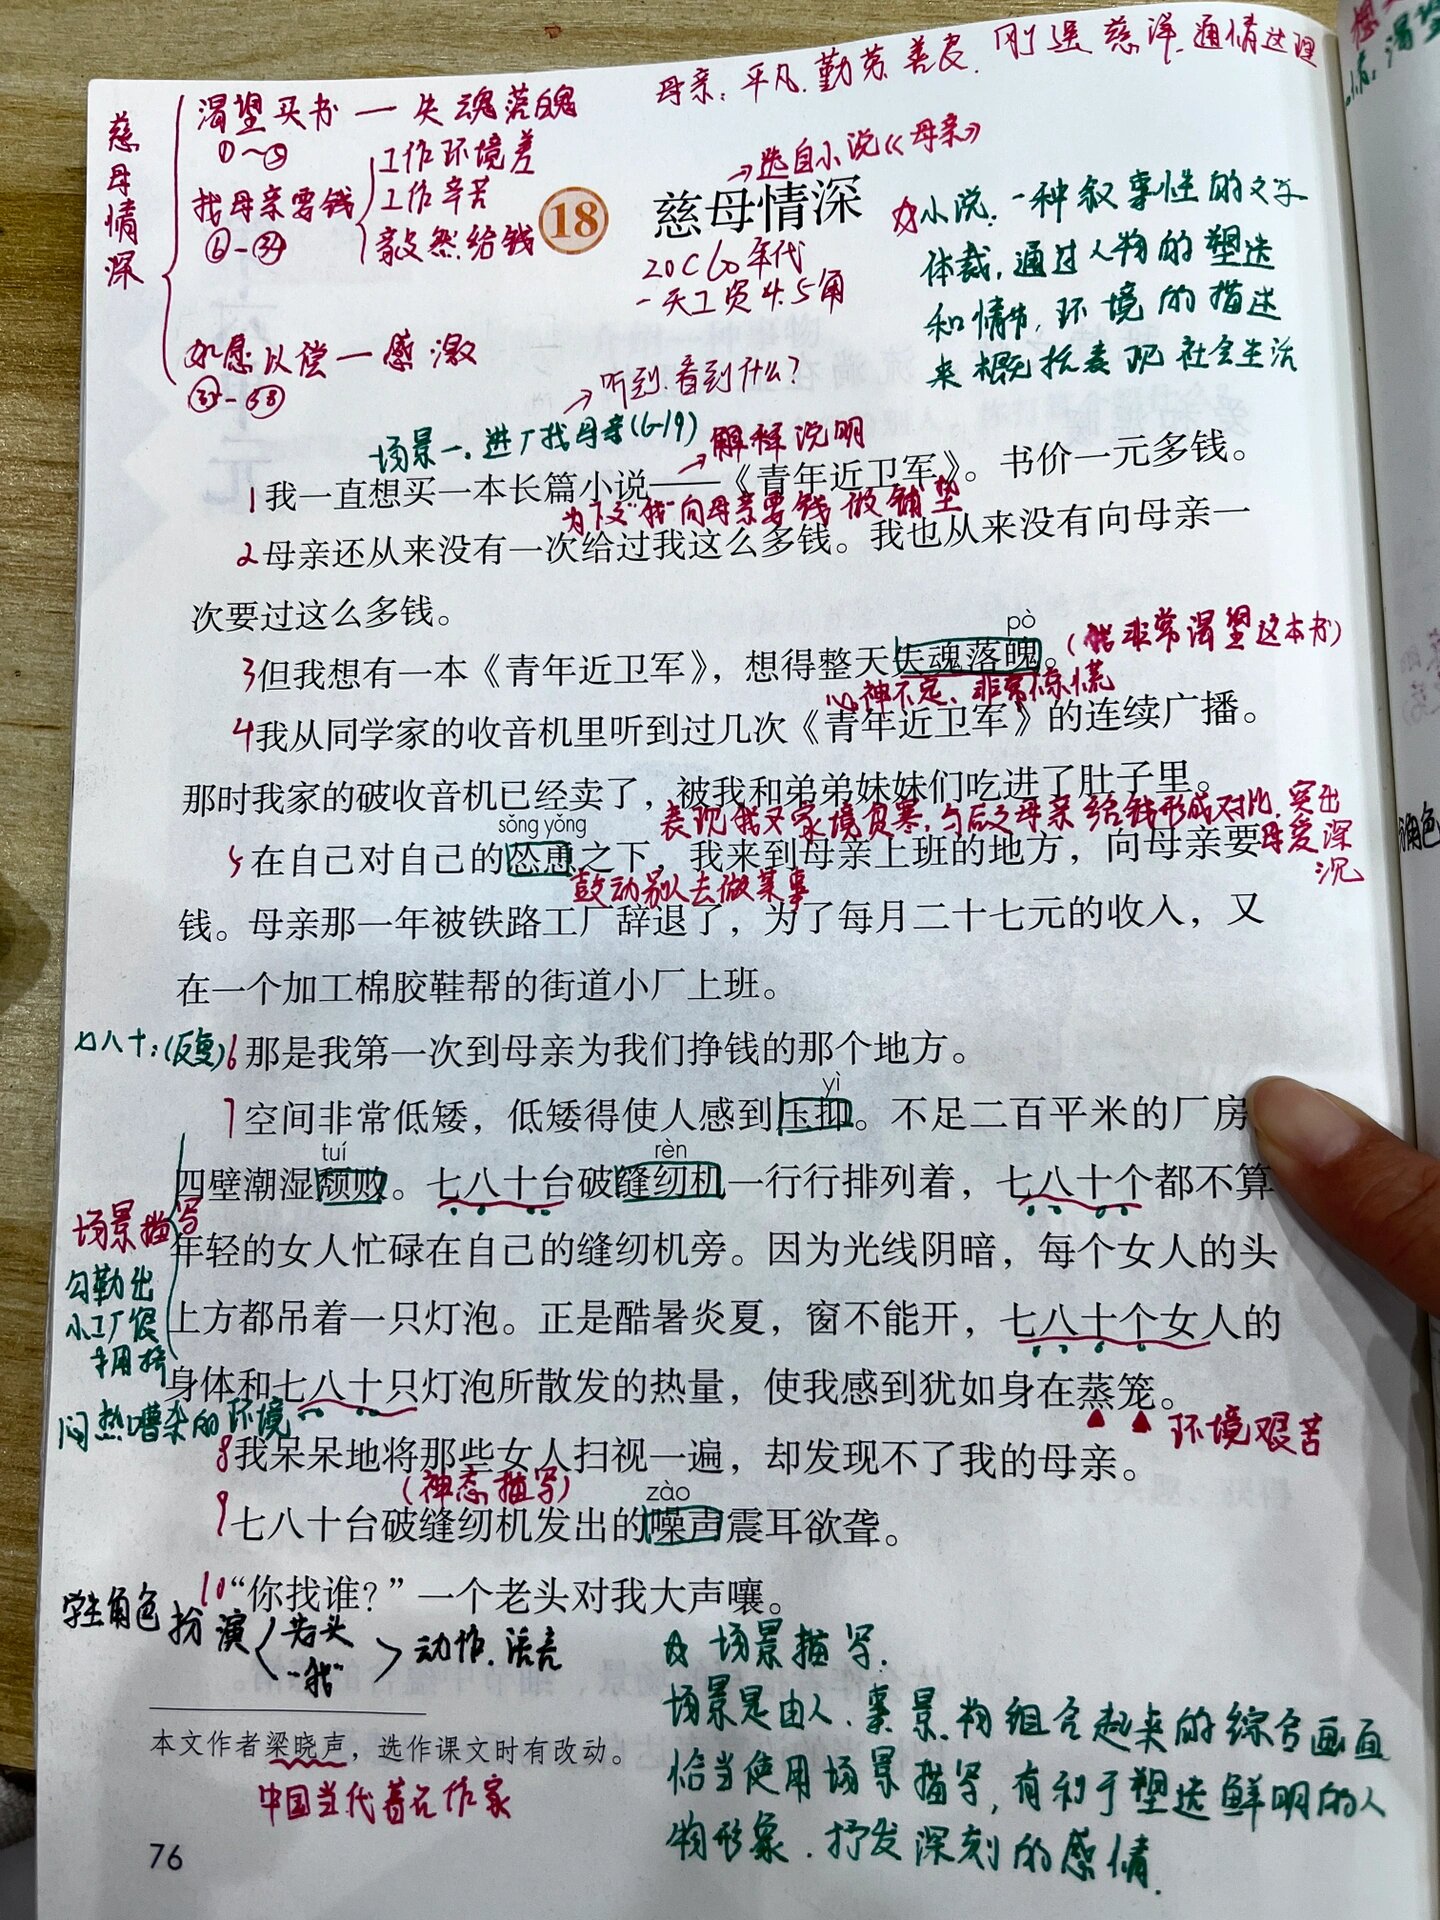 母亲：平凡.勤劳.善良.刚强.慈泽.通情达理
慈母情深
渴望买书一失魂落魄
①~⑤
找母亲要钱
⑥-㉞
工作环境差
工作辛苦
毅然给钱
如愿以偿一感激
㉟-㊳
→选自小说《母亲》
18 慈母情深
20C60年代
一天工资4.5角
小说.一种叙事性的文学
体裁,通过人物的塑造
和情节,环境的描述
来概括表现社会生活
→听到.看到什么?
场景一.进厂找母亲(6-19)
→解释说明
1我一直想买一本长篇小说——《青年近卫军》。书价一元多钱。
为下文“我”向母亲要钱做铺垫
2母亲还从来没有一次给过我这么多钱。我也从来没有向母亲一
次要过这么多钱。
pò
3但我想有一本《青年近卫军》，想得整天失魂落魄。(我非常渴望这本书)
心神不定、非常惊慌
4我从同学家的收音机里听到过几次《青年近卫军》的连续广播。
那时我家的破收音机已经卖了，被我和弟弟妹妹们吃进了肚子里。
表现我又家境贫寒,与后文母亲给钱形成对比.突出
母爱深沉
sǒng yǒng
5在自己对自己的怂恿之下，我来到母亲上班的地方，向母亲要
鼓动别人去做某事
钱。母亲那一年被铁路工厂辞退了，为了每月二十七元的收入，又
在一个加工棉胶鞋帮的街道小厂上班。
七八十:(反复)
6那是我第一次到母亲为我们挣钱的那个地方。
yì
7空间非常低矮，低矮得使人感到压抑。不足二百平米的厂房
tuí rèn
四壁潮湿颓败。七八十台破缝纫机一行行排列着，七八十个都不算
年轻的女人忙碌在自己的缝纫机旁。因为光线阴暗，每个女人的头
上方都吊着一只灯泡。正是酷暑炎夏，窗不能开，七八十个女人的
身体和七八十只灯泡所散发的热量，使我感到犹如身在蒸笼。
场景描写
勾勒出
小工厂很
拥挤
闷热嘈杂的环境
环境艰苦
8我呆呆地将那些女人扫视一遍，却发现不了我的母亲。
(神态描写)
zào
9七八十台破缝纫机发出的噪声震耳欲聋。
10“你找谁？”一个老头对我大声嚷。
学生角色扮演
老头
“我”
动作.语言
场景描写.
场景是由人、事、景.物组合起来的综合画面
恰当使用场景描写,有利于塑造鲜明的人
物形象.抒发深刻的感情.
本文作者梁晓声，选作课文时有改动。
中国当代著名作家
76
角色